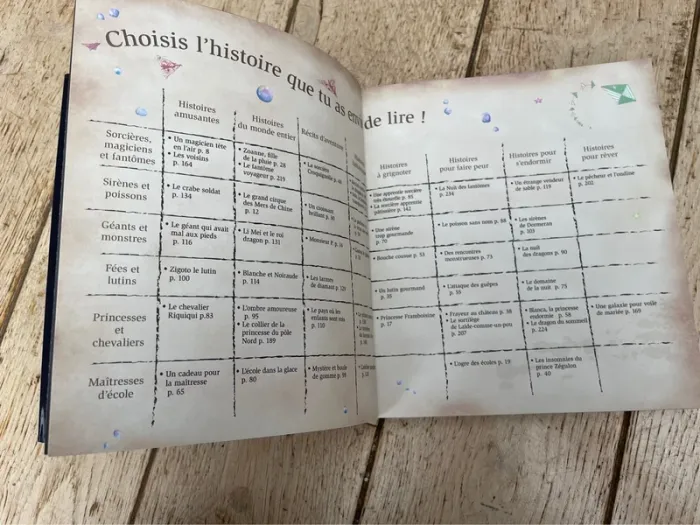 Choisis l'histoire que tu as
de lire !
Histoires
amusantes
Histoires
du monde entier
Récits d'aventure
Histoires
à grignoter
Histoires
pour faire peur
Histoires pour
s'endormir
Histoires
pour rêver
Sorcières,
magiciens
et fantômes
• Un magicien tête
en l'air p. 8
• Les voisins
p. 164
• Zoanne, fille
de la pluie p. 28
• Le fantôme
voyageur p. 219
• La sorcière
• Une apprentie sorcière
très douée
• La sorcière apprentie
pâtissière p. 142
• La Nuit des fantômes
p. 234
• Un étrange vendeur
de sable p. 119
• Le pêcheur et l'ondine
p. 202
Sirènes et
poissons
• Le crabe soldat
p. 134
• Le grand cirque
des Mers de Chine
p. 12
• Un croissant
brillant p. 38
• Une sirène
trop gourmande
p. 70
• Le poisson sans nom p. 88
• Les sirènes
de Dormeran
p. 105
Géants et
monstres
• Le géant qui avait
mal aux pieds
p. 116
• Li Mei et le roi
dragon p. 131
• Monsieur
• Bouche cousue p. 53
• Des rencontres
monstrueuses p. 73
• La nuit
des dragons p. 90
Fées et
lutins
• Zigoto le lutin
p. 100
• Blanche et Noiraude
p. 114
• Les larmes
de diamant p. 120
• Un lutin gourmand
p. 35
• L'attaque des guêpes
p. 59
• Le domaine
de la nuit p. 75
Princesses
et
chevaliers
• Le chevalier
Riquiqui p.83
• L'ombre amoureuse
p. 95
• Le collier de la
princesse du pôle
Nord p. 189
• Le pays où les
enfants sont rois
p. 110
• Princesse Framboisine
p. 17
• Frayeur au château p. 38
• Le sortilège
de Laide-comme-un-pou
p. 207
• Bianca, la princesse
endormie p. 58
• Le dragon du sommeil
p. 224
• Une galaxie pour voile
de mariée p. 169
Maîtresses
d'école
• Un cadeau pour
la maîtresse
p. 65
• L'école dans la glace
p. 80
• Mystère et boule
de gomme p. 99
• L'ogre des écoles p. 19
• Les insomnies du
prince Zégulon
p. 40